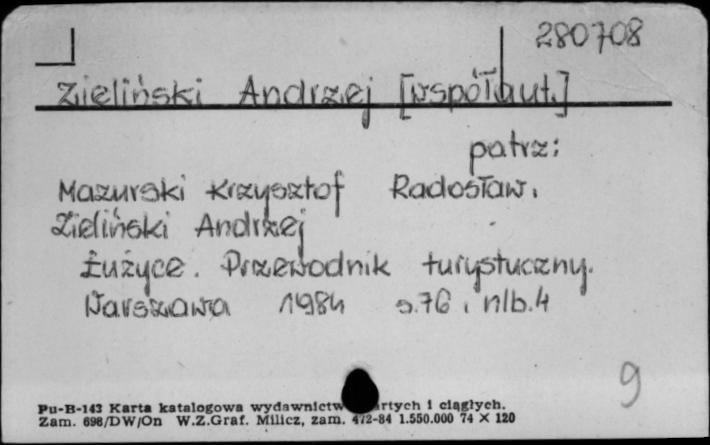 280708
Zieliński Andrzej [współaut.]
patrz:
Mazurski Krzysztof Radosław,
Zieliński Andrzej
Łużyce. Przewodnik turystyczny.
Warszawa 1984 s.76, nlb.4
9
Pu-B-143 Karta katalogowa wydawnictw artych i ciągłych.
Zam. 698/DW/On W.Z.Graf. Milicz, zam. 472-84 1.550.000 74 X 120